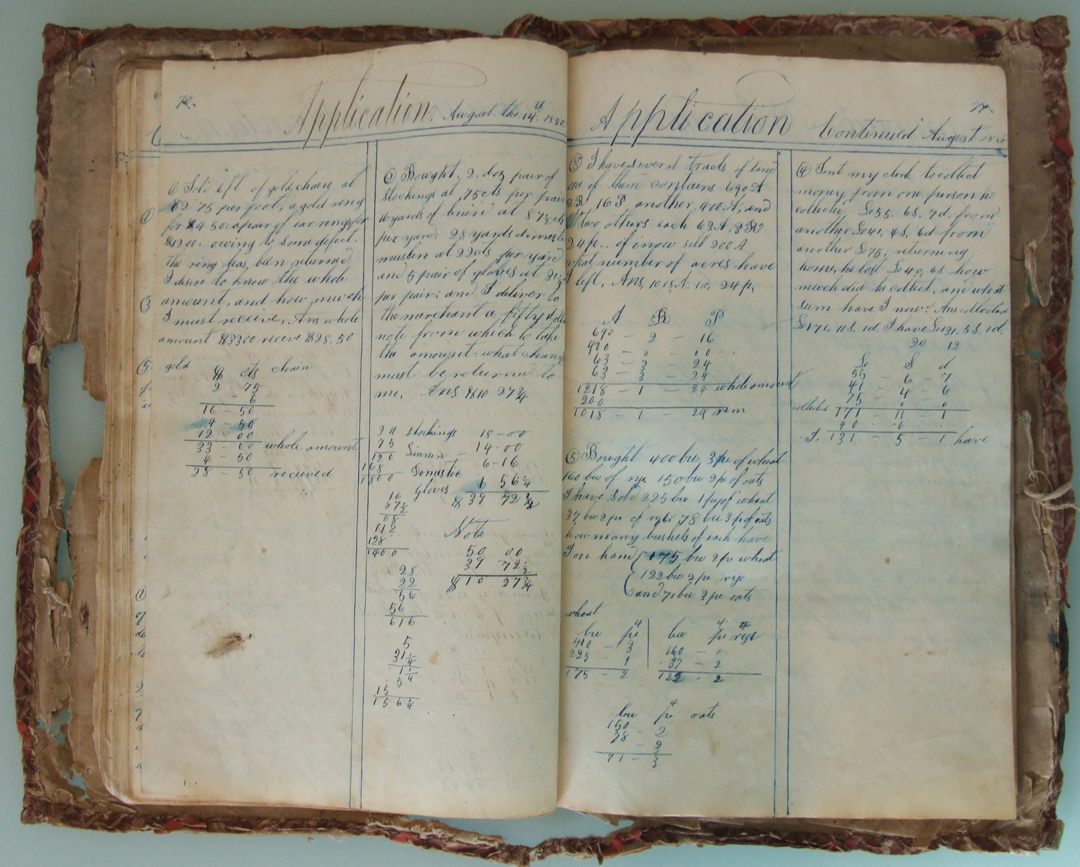 Application. August the 14th
Sold 6ft of gold chain at
$2.75 per foot, a gold ring
for $4.50 a pair of ear rings for
$12.00. owing to some defect
the ring has been returned
I desire to know the whole
amount, and how much
I must receive. Ans whole
amount $33.00 receive $28.50
gold
$ cts chain
2 75
6
16 - 50
4 50
12 - 00
33 00 whole amount
4 - 50
28 - 50 received
Bought, 2 doz pair of
stockings at 75 cts per pair
16 yards of linen at 87½ cts
per yard. 28 yards domestic
muslin at 22 cts per yard
and 5 pair of gloves at 31¼
per pair; and I deliver to
the merchant a fifty dollar
note from which to take
the amount what change
must be returned to
me. Ans $10 27¾
24 stockings 18 - 00
75 Linnen - 14 - 00
120 Domestic 6 - 16
168 Gloves 1 56¼
1800 $ 39 72¼
16
87½
8
112
128
1400
Note
50 00
$ 10 27¾
28
22
56
56
616
5
31¼
1¼
5
15
156¼
Application Continued August
(3) I have several tracts of land
one of them contains 640 A
2 R 16 P another 400 A, and
two others each 63 A 2 R
24 p. if I now sell 200 A
what number of acres have
I left. Ans 1018 A. 1 r. 24 p.
A R P
640 - 2 - 16
63 - 3 - 24
63 - 3 - 24
1218 - 1 - 24 whole amount
200
1018 - 1 - 24 rem
(5) Bought 400 bu 3 pe of wheat
160 bu of rye 150 bu 2 pe of oats
I have sold 225 bu 1 pe of wheat
37 bu 2 pe of rye 78 bu 3 pe of oats
how many bushels of each have
I on hand 175 bu 2 pe wheat
122 bu 2 pe rye
and 71 bu 3 pe oats
wheat
4
bu pe
400 - 3
225 - 1
175 - 2
4
bu pe rye
160 - 0
37 - 2
122 - 2
4
bu pe oats
150 - 2
78 - 3
71 - 3
(4) Sent my clerk to collect
money, from one person he
collects £55. 6S. 7d. from
another £41. 4S. 6d from
another £75; returning
home, he lost £40, 6S how
much did he collect, and what
sum have I now: Ans collected
£171. 11S. 1d I have £131. 5S. 1d.
20 12
£ S d
55 - 6 - 7
41 - 4 - 6
75 - 0 - 0
collects 171 - 11 - 1
40 - 6
I. 131 - 5 - 1 have